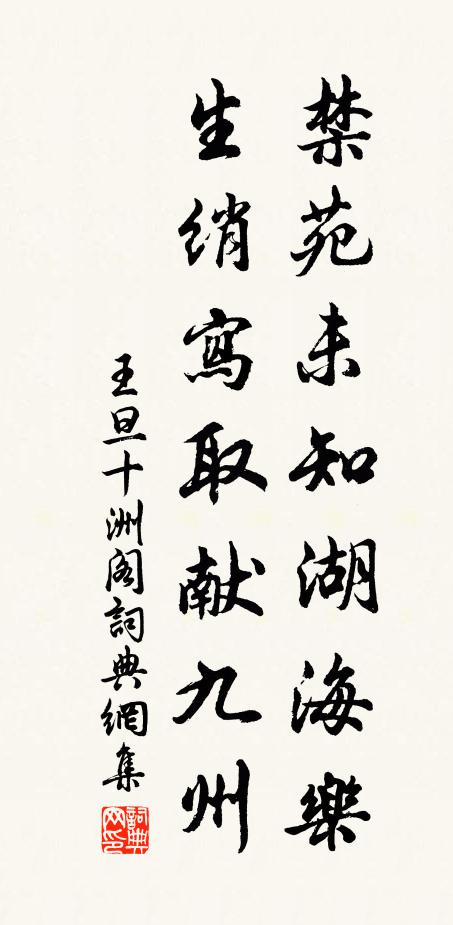 禁苑未知湖海樂
生绡寫取献九州
王旦十洲阁詞典網集
詞典网印